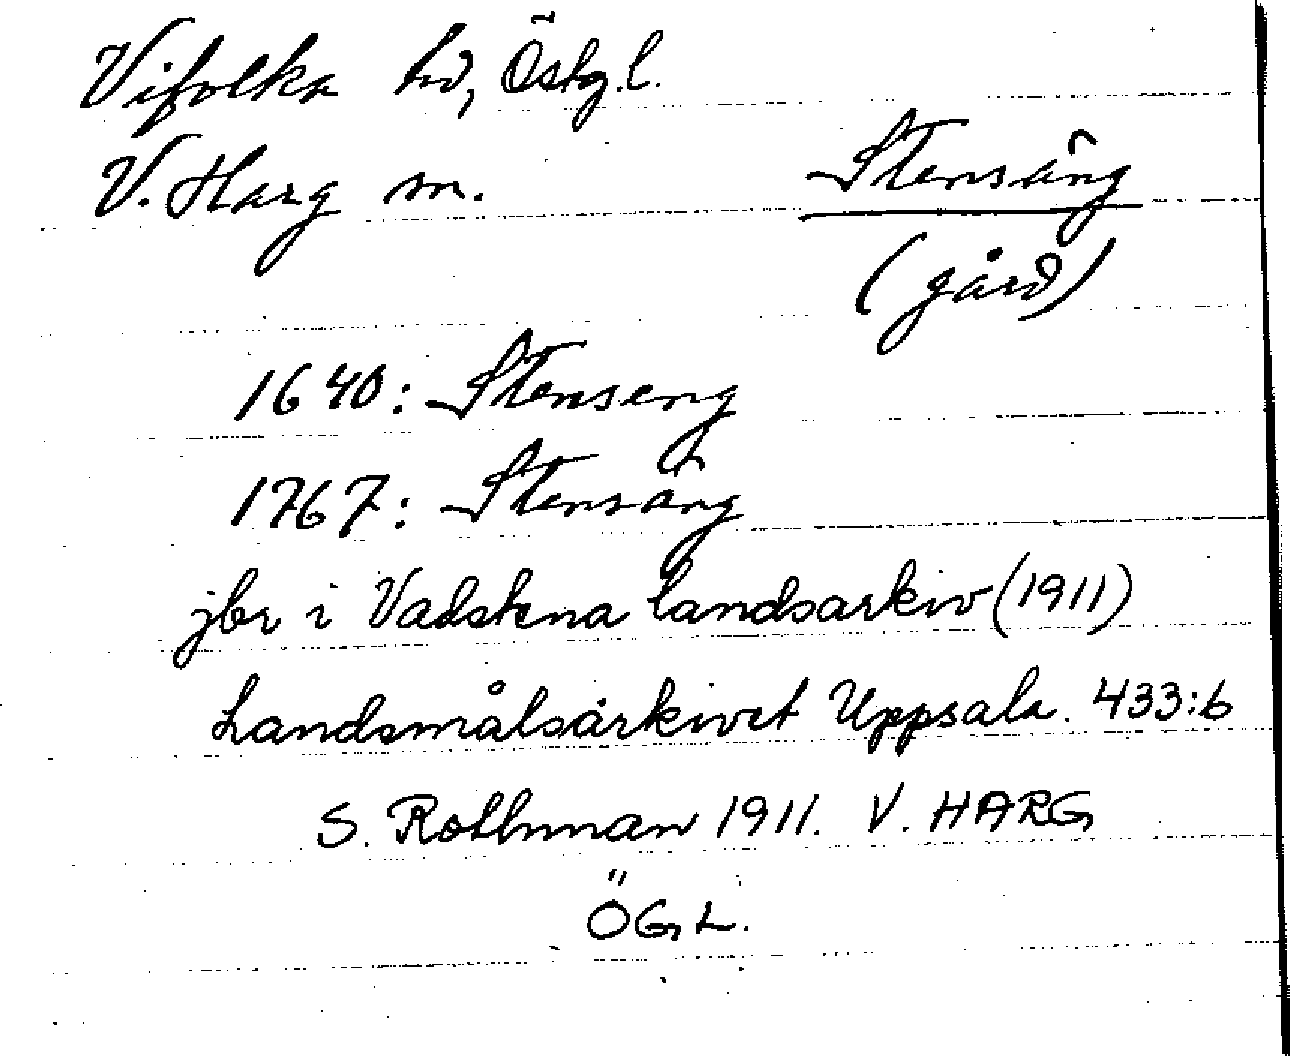 Vifolka hd, Östg.l.
V. Harg sn.
Stensäng
(gård)
1640: Stenseng
1767: Stensäng
jbr i Vadstena landsarkiv (1911)
Landsmålsarkivet Uppsala. 433:6
S. Rothman 1911. V. HARG
ÖGL.